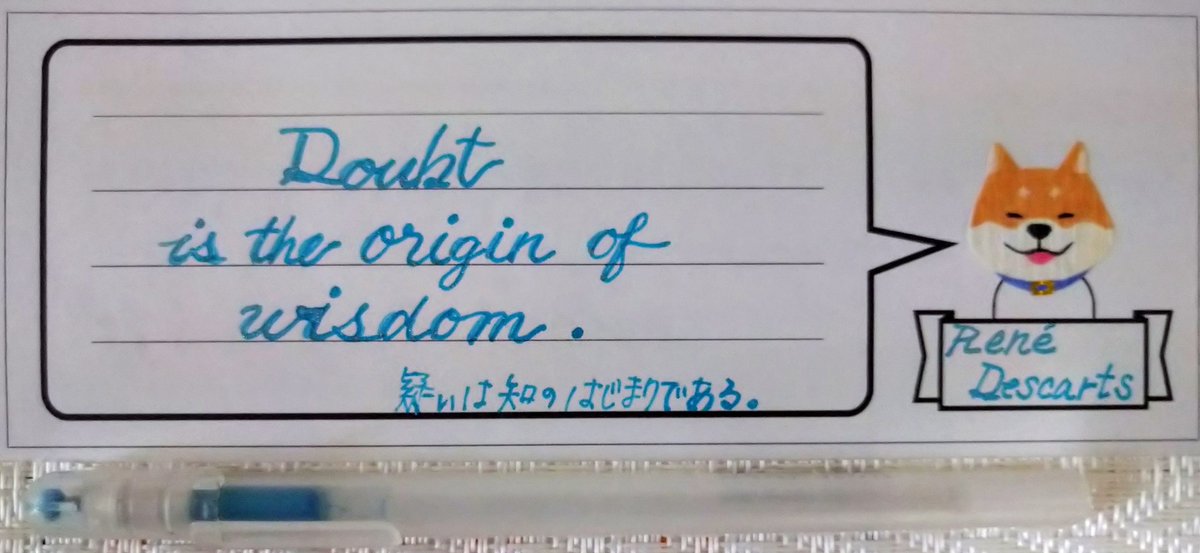 Doubt
is the origin of
wisdom.
疑いは知のはじまりである。
René
Descarts